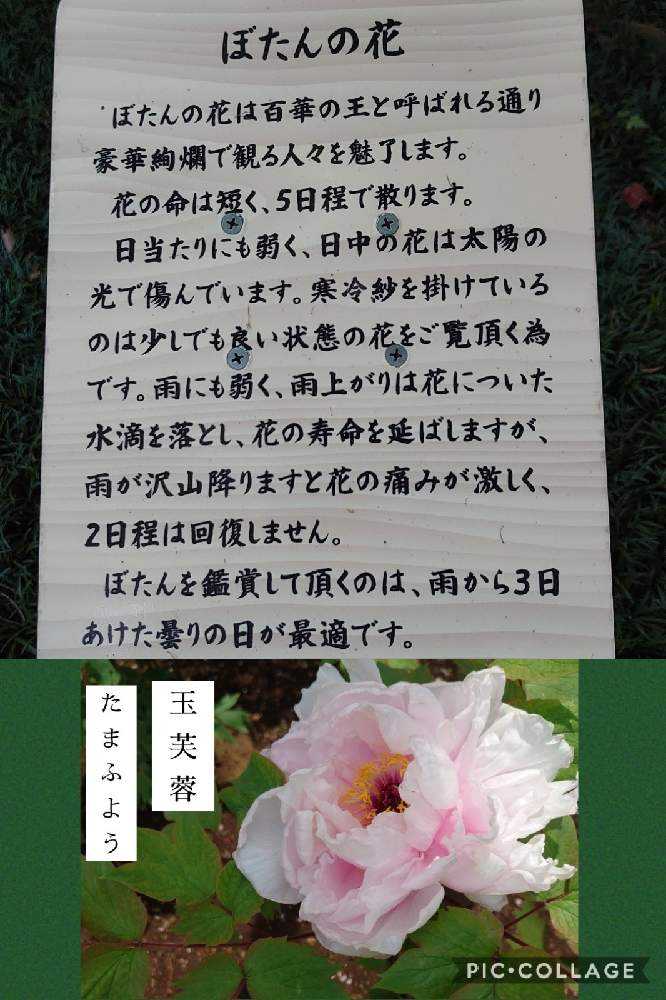 ぼたんの花
ぼたんの花は百華の王と呼ばれる通り
豪華絢爛で観る人々を魅了します。
花の命は短く、5日程で散ります。
日当たりにも弱く、日中の花は太陽の
光で傷んでいます。寒冷紗を掛けている
のは少しでも良い状態の花をご覧頂く為
です。雨にも弱く、雨上がりは花についた
水滴を落とし、花の寿命を延ばしますが、
雨が沢山降りますと花の痛みが激しく、
2日程は回復しません。
ぼたんを鑑賞して頂くのは、雨から3日
あけた曇りの日が最適です。
玉芙蓉
たまふよう
PIC•COLLAGE